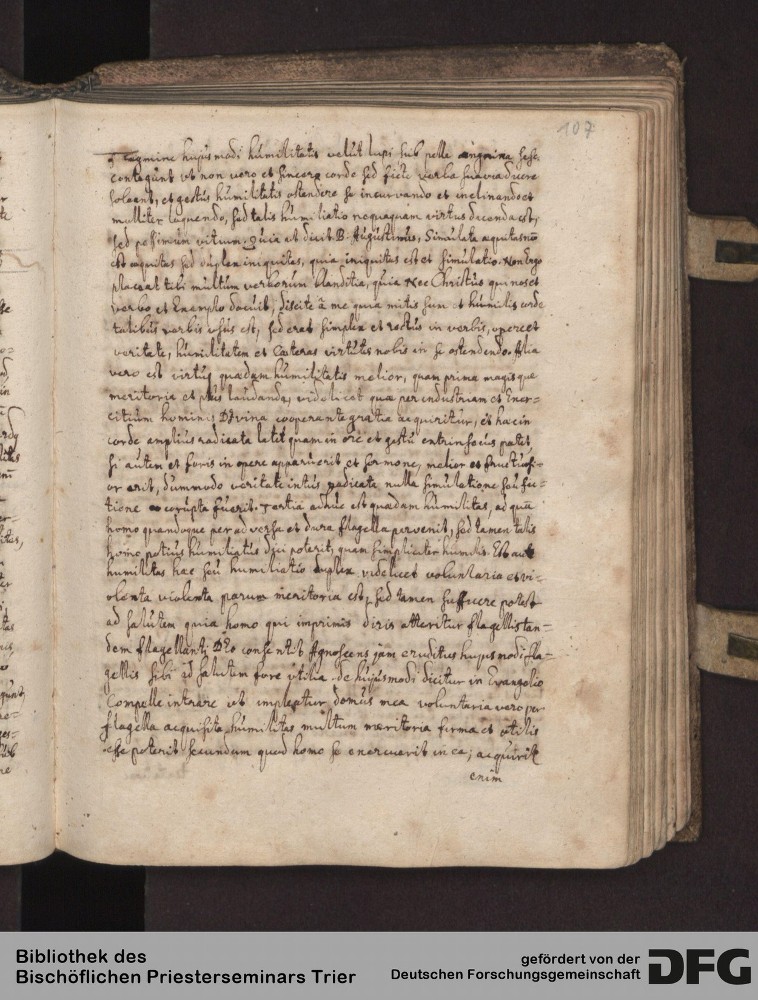 107
tegmine hujusmodi humilitatis velut lupi sub pelle sese
contegunt ut non vero et sincero corde sed ficte verba suavia ducere
soleant, et gestus humilitatis ostendere se incurvando et inclinando et
molliter loquendo, sed talis humiliatio nequaquam virtus dicenda est,
sed pessimum vitium. quia ut dicit B. Augustinus, Simulata aequitas nō
est aequitas sed duplex iniquitas, quia iniquitas est et simulatio. Non ergo
placeat tibi multum verborum blanditia, quia nec Christus qui nos et
verbo et Exemplo docuit, discite â me quia mitis sum et humilis corde
talibus verbis usus est, sed erat simplex et rectus in verbis, opere et
veritate, humilitatem et Caeteras virtutes nobis in se ostendendo. Alia
vero est virtus quaedam humilitatis melior, quam prima magisque
meritoria et plus laudanda, videlicet quae per industriam et Exer=
citium hominis Divina cooperante gratia acquiritur, et haec in
corde amplius radicata latet quam in ore et gestu extrinsecus patet,
si autem et foris in opere apparuerit et sermone, melior et fructuosi=
or erit, dummodo veritate intus radicata nulla simulatione seu fic=
tione corrupta fuerit. Tertia adhuc est quaedam humilitas, ad quā
homo quandoque per adversa et dura flagella pervenit, sed tamen talis
homo potius humiliatus dici poterit, quam simpliciter humilis. Est aut
humilitas haec seu humiliatio duplex videlicet voluntaria et vi=
olenta violenta parum meritoria est, sed tamen sufficere potest
ad salutem quia homo qui imprimis diris atteritur flagellis tan=
dem flagellanti DEo consentit Agnoscens jam eruditus hujusmodi fla=
gellis sibi ad salutem fore utilia de hujusmodi dicitur in Evangelio
Compelle intrare ut impleatur domus mea voluntaria vero per
flagella acquisita humilitas multum meritoria firma et utilis
esse poterit secundum quod homo se exercuerit in ea; acquirit
enim
Bibliothek des
Bischöflichen Priesterseminars Trier
gefördert von der
Deutschen Forschungsgemeinschaft
DFG